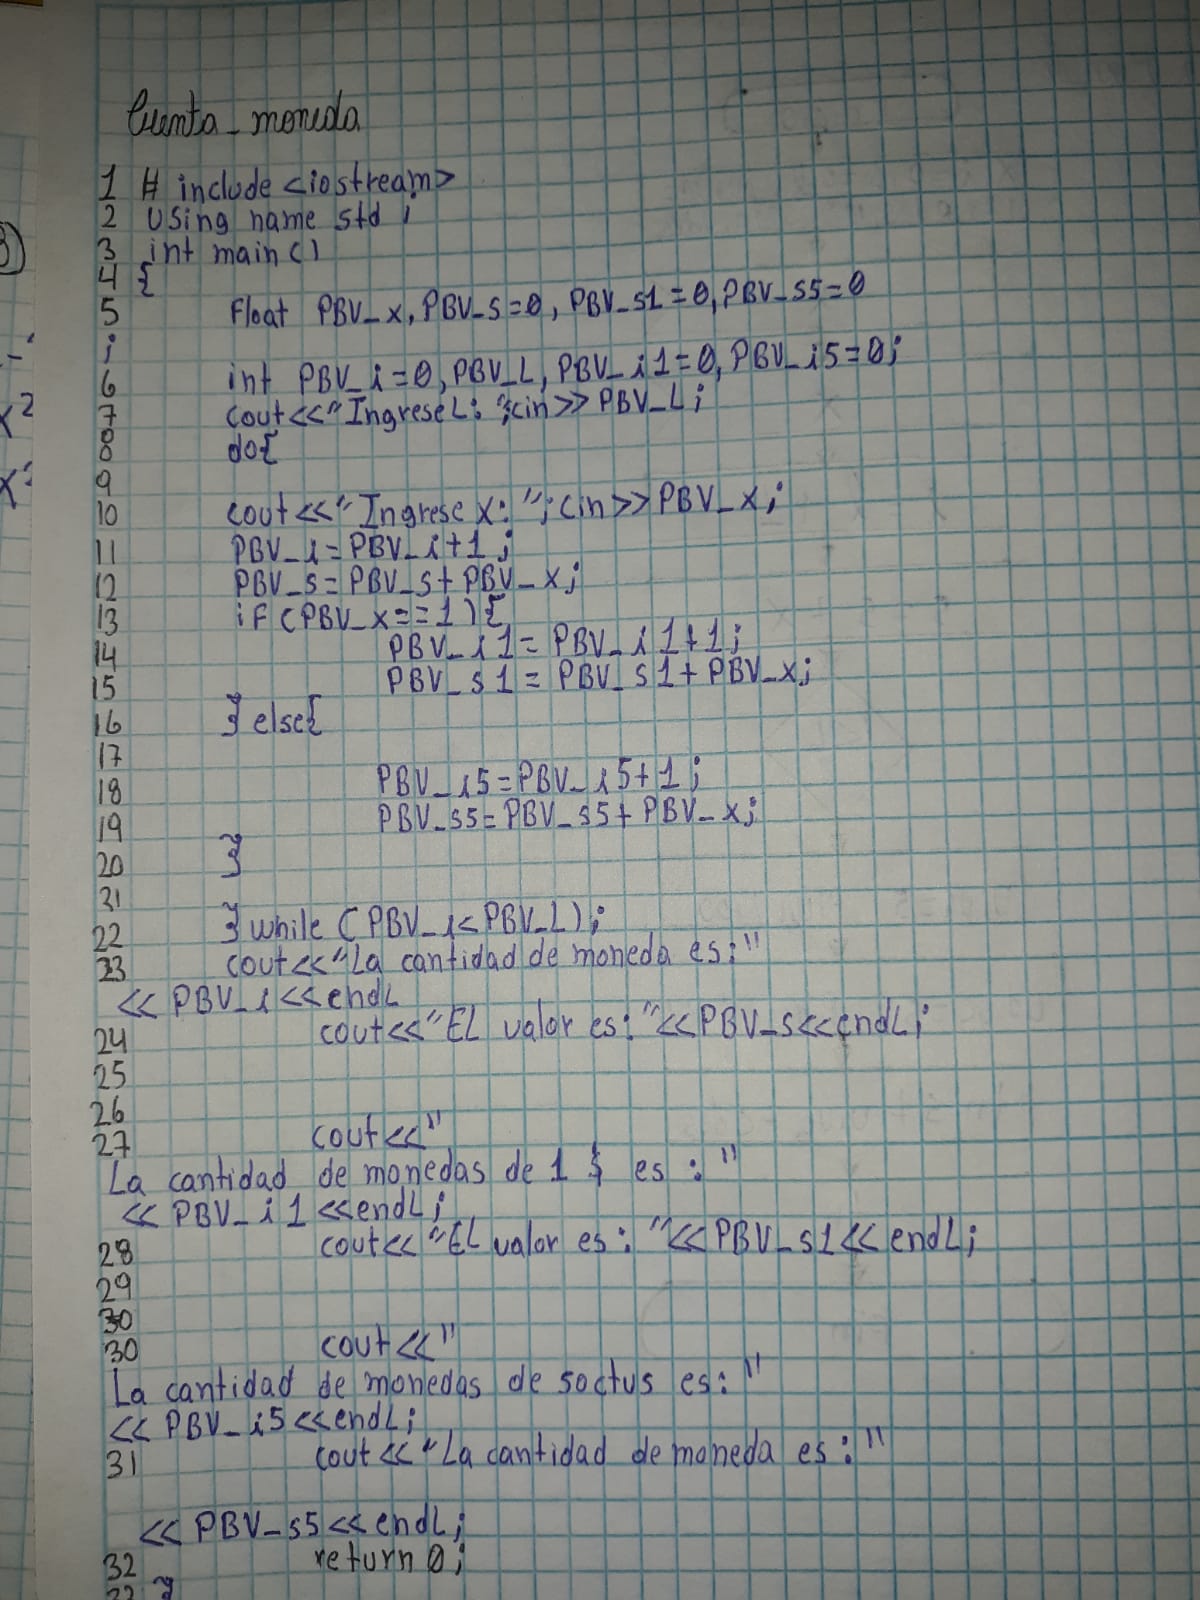 Cuenta_moneda
1 # include <iostream>
2 Using name std ;
3 int main()
4 {
5 Float PBV_x, PBV_s=0, PBV_s1=0, PBV_s5=0
;
6 int PBV_i=0, PBV_L, PBV_i1=0, PBV_i5=0;
7 cout<<"Ingrese L: ";cin>>PBV_L;
8 do{
9
10 cout<<"Ingrese x: ";cin>>PBV_x;
11 PBV_i=PBV_i+1;
12 PBV_s=PBV_s+PBV_x;
13 if(PBV_x==1){
14 PBV_i1=PBV_i1+1;
15 PBV_s1=PBV_s1+PBV_x;
16 }else{
17
18 PBV_i5=PBV_i5+1;
19 PBV_s5=PBV_s5+PBV_x;
20 }
31
22 }while(PBV_i<PBV_L);
23 cout<<"La cantidad de moneda es:"
<<PBV_i<<endL
24 cout<<"EL valor es: "<<PBV_s<<endL;
25
26
27 cout<<"
La cantidad de monedas de 1 $ es : "
<<PBV_i1<<endL;
28 cout<<"EL valor es: "<<PBV_s1<<endL;
29
30
30 cout<<"
La cantidad de monedas de soctus es: "
<<PBV_i5<<endL;
31 cout<<"La cantidad de moneda es: "
<<PBV_s5<<endL;
32 return 0;
33 }